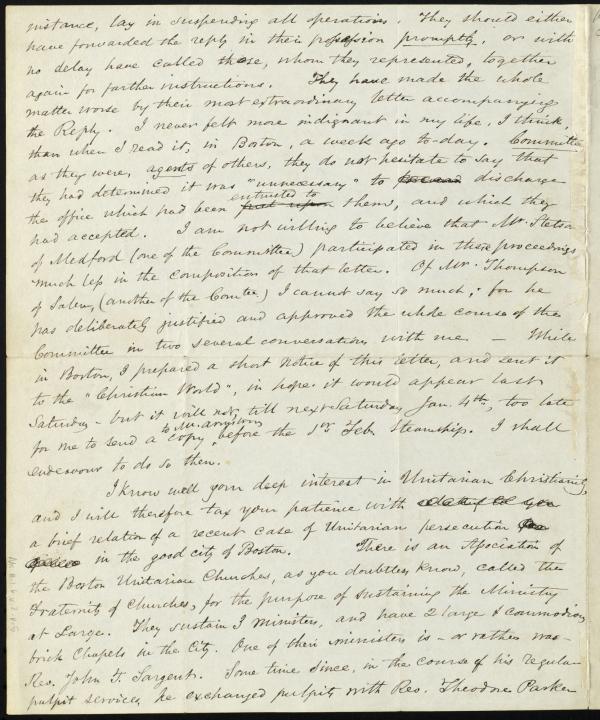 instance, lay in suspending all operations. They should either
have forwarded the reply in their possession promptly, or with
no delay have called those, whom they represented, together
again for farther instructions. They have made the whole
matter worse by their most extraordinary letter accompanying
the Reply. I never felt more indignant in my life, I think,
than when I read it, in Boston, a week ago to-day. Committee
as they were, agents of others, they do not hesitate to say that
they had determined it was "unnecessary" to discharge
the office which had been entrusted to them, and which they
had accepted. I am not willing to believe that Mr. Stetson
of Medford (one of the Committee) participated in these proceedings
much less in the composition of that letter. Of Mr. Thompson
of Salem, (another of the Comtee) I cannot say so much; for he
has deliberately justified and approved the whole course of the
Committee in two several conversations with me. — While
in Boston, I prepared a short notice of this letter, and sent it
to the "Christian World", in hopes it would appear last
Saturday - but it will not, till next Saturday Jan. 4th, too late
for me to send a copy to Mr. Armstrong before the 1st Feb. Steamship. I shall
endeavour to do so then.
I know well your deep interest in Unitarian Christianity,
and I will therefore tax your patience with
a brief relation of a recent case of Unitarian persecution
in the good city of Boston. There is an Association of
the Boston Unitarian Churches, as you doubtless know, called the
Fraternity of Churches, for the purpose of sustaining the Ministry
at Large. They sustain 3 ministers, and have 2 large & commodious
brick Chapels in the City. One of their ministers is - or rather was -
Rev. John T. Sargent. Some time since, in the course of his regular
pulpit services, he exchanged pulpits with Rev. Theodore Parker